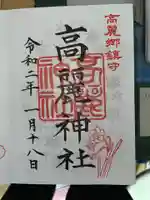 高麗郷鎮守
高麗神社
令和二年一月十八日